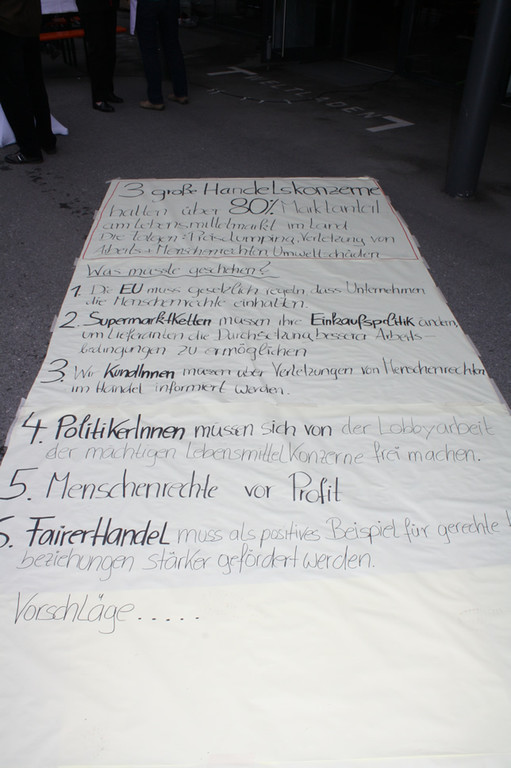 WELTLADEN
3 große Handelskonzerne
halten über 80% Marktanteil
am Lebensmittelmarkt im Land
Die Folgen: Preisdumping, Verletzung von
Arbeits- + Menschenrechten Umweltschäden
Was müsste geschehen?
1. Die EU muss gesetzlich regeln dass Unternehmen
die Menschenrechte einhalten.
2. Supermarktketten müssen ihre Einkaufspolitik ändern,
um Lieferanten die Durchsetzung besserer Arbeits-
bedingungen zu ermöglichen
3. Wir KundInnen müssen über Verletzungen von Menschenrechten
im Handel informiert werden.
4. PolitikerInnen müssen sich von der Lobbyarbeit
der mächtigen Lebensmittelkonzerne frei machen.
5. Menschenrechte vor Profit
6. FairerHandel muss als positives Beispiel für gerechte
beziehungen stärker gefördert werden.
Vorschläge.....